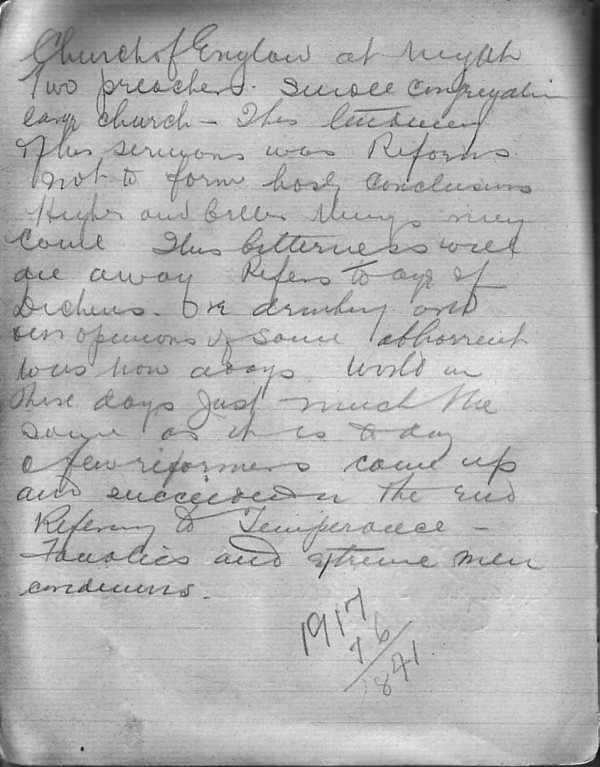 Church of England at night
Two preachers. Small congregation
large church - This
of his sermons was Reforms
Not to form hasty conclusions
Higher and better things may
come This bitterness will
die away Refers to age of
Dickens. One drinking and
his opinions of some abhorrent
to us now adays World in
those days just much the
same as it is to day
a few reformers come up
and succeeded in the end
Refering to Temperance -
Fanatics and extreme men
condemns.
1917
76
1841